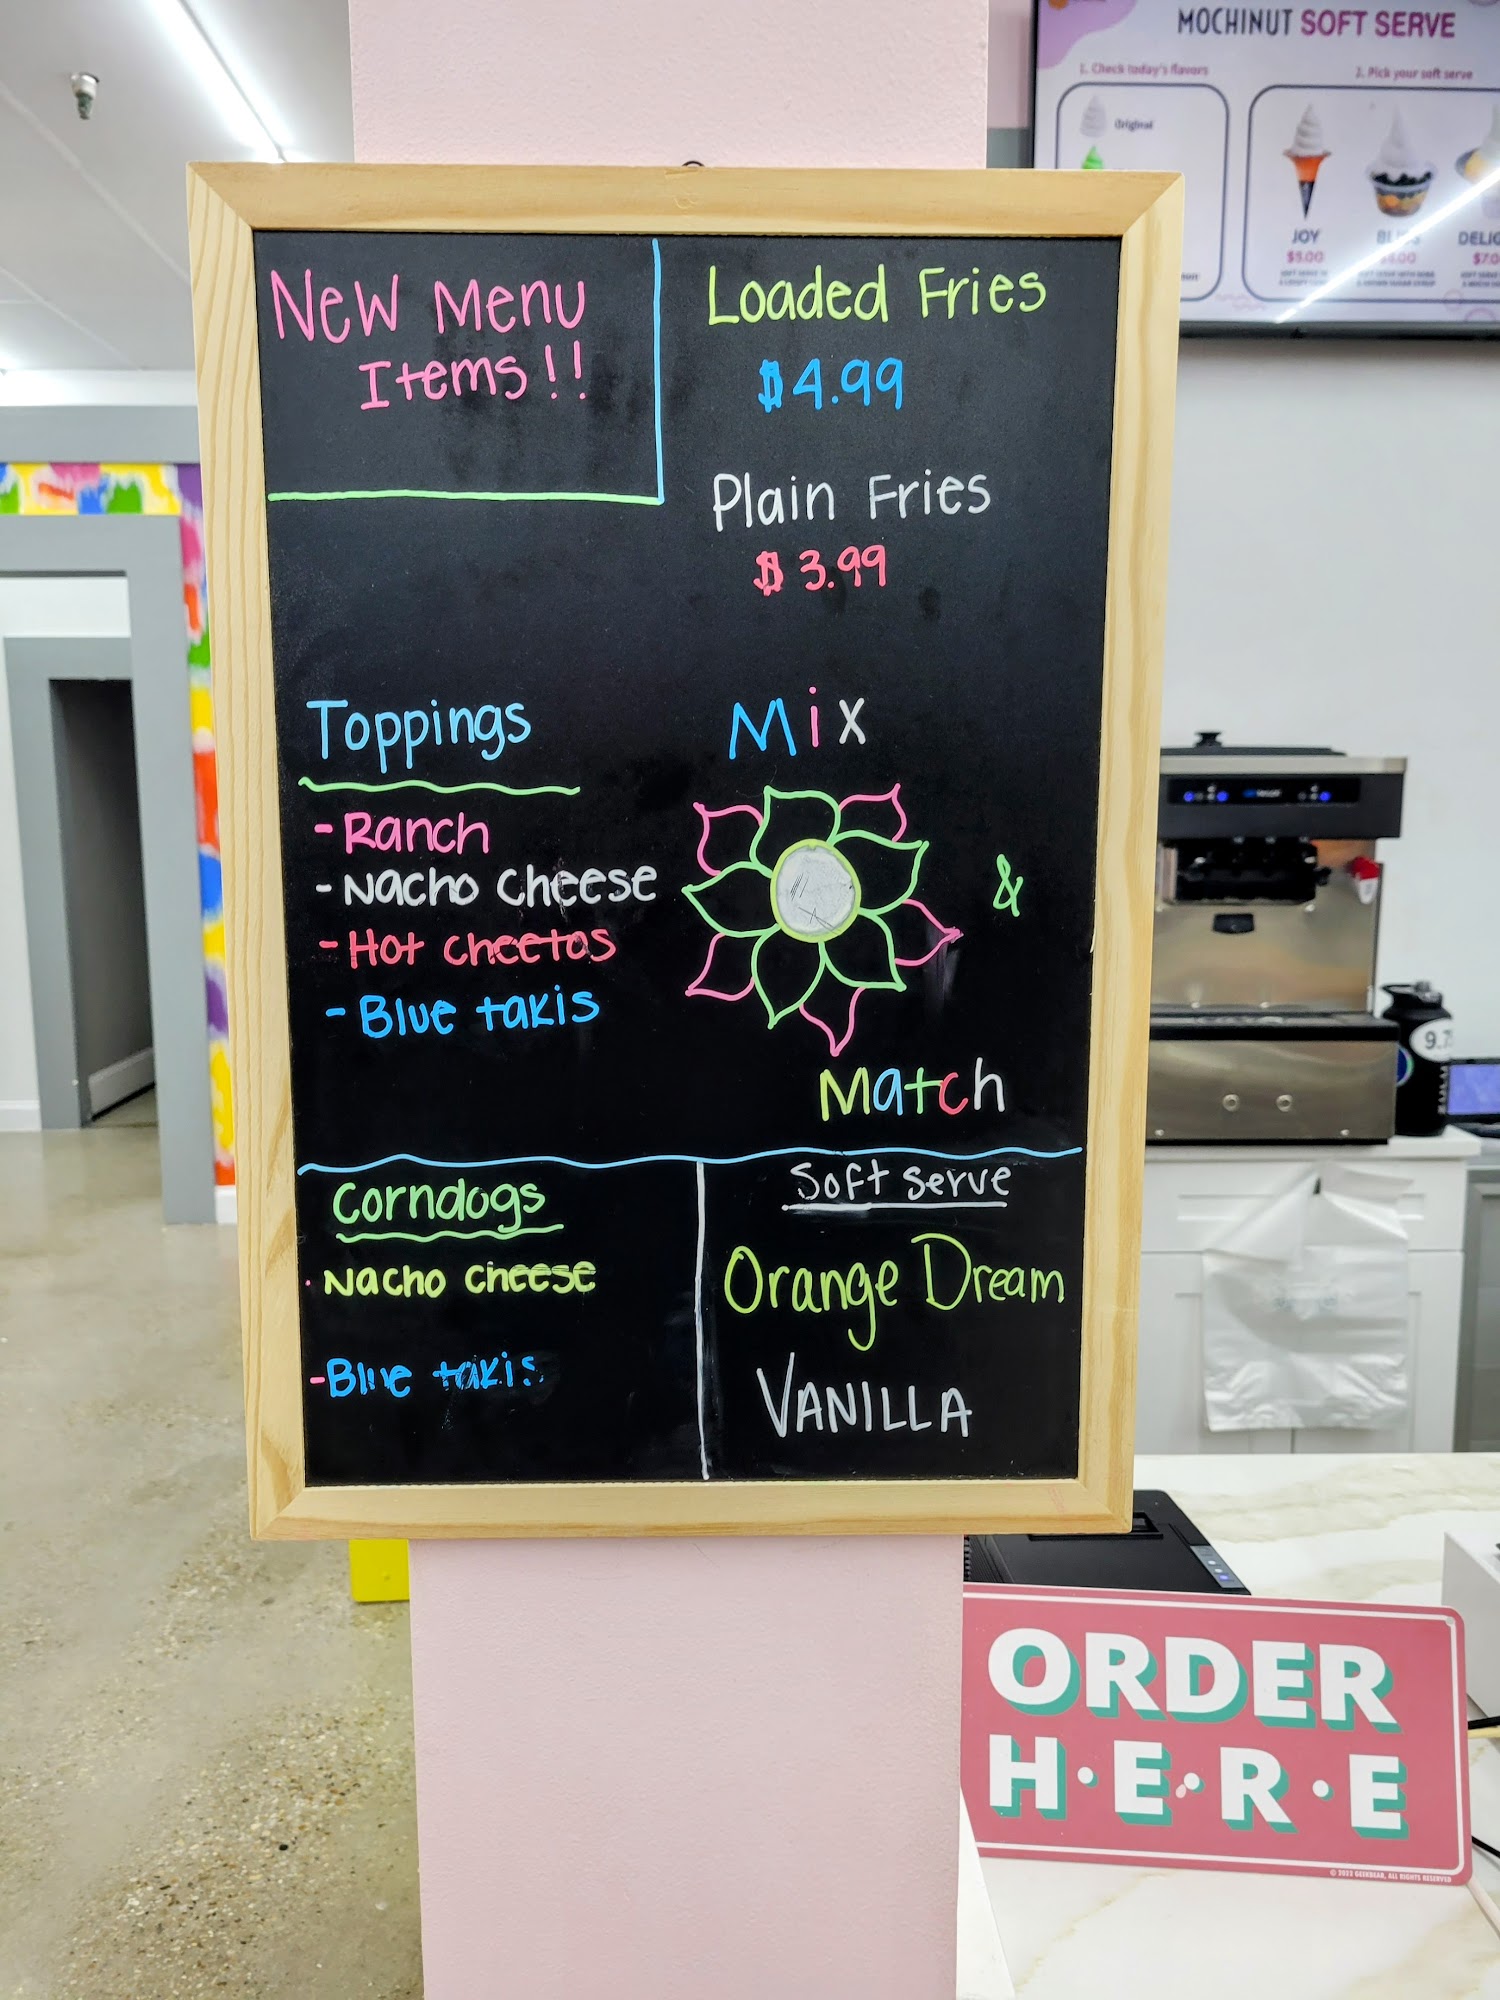 MOCHINUT SOFT SERVE
1. Check today's flavors
2. Pick your soft serve
Original
JOY
$5.00
New Menu
Items!!
Loaded Fries
$4.99
Plain Fries
$3.99
Toppings
- Ranch
- Nacho Cheese
- Hot Cheetos
- Blue takis
Mix
&
Match
Corndogs
Nacho Cheese
- Blue takis
Soft Serve
Orange Dream
VANILLA
ORDER
H·E·R·E
© 2023 GEEKBEAR, ALL RIGHTS RESERVED